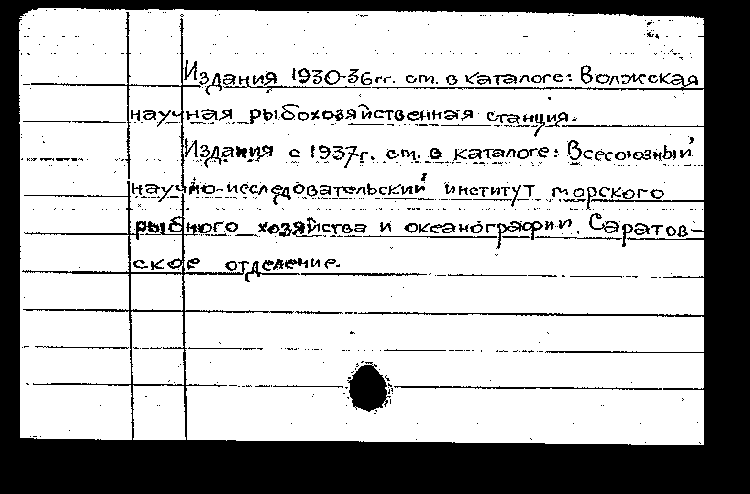 Издания 1930-36гг. см. в каталоге: Волжская
научная рыбохозяйственная станция.
Издания с 1937г. см. в каталоге: Всесоюзный
научно-исследовательский институт морского
рыбного хозяйства и океанографии. Саратов-
ское отделение.